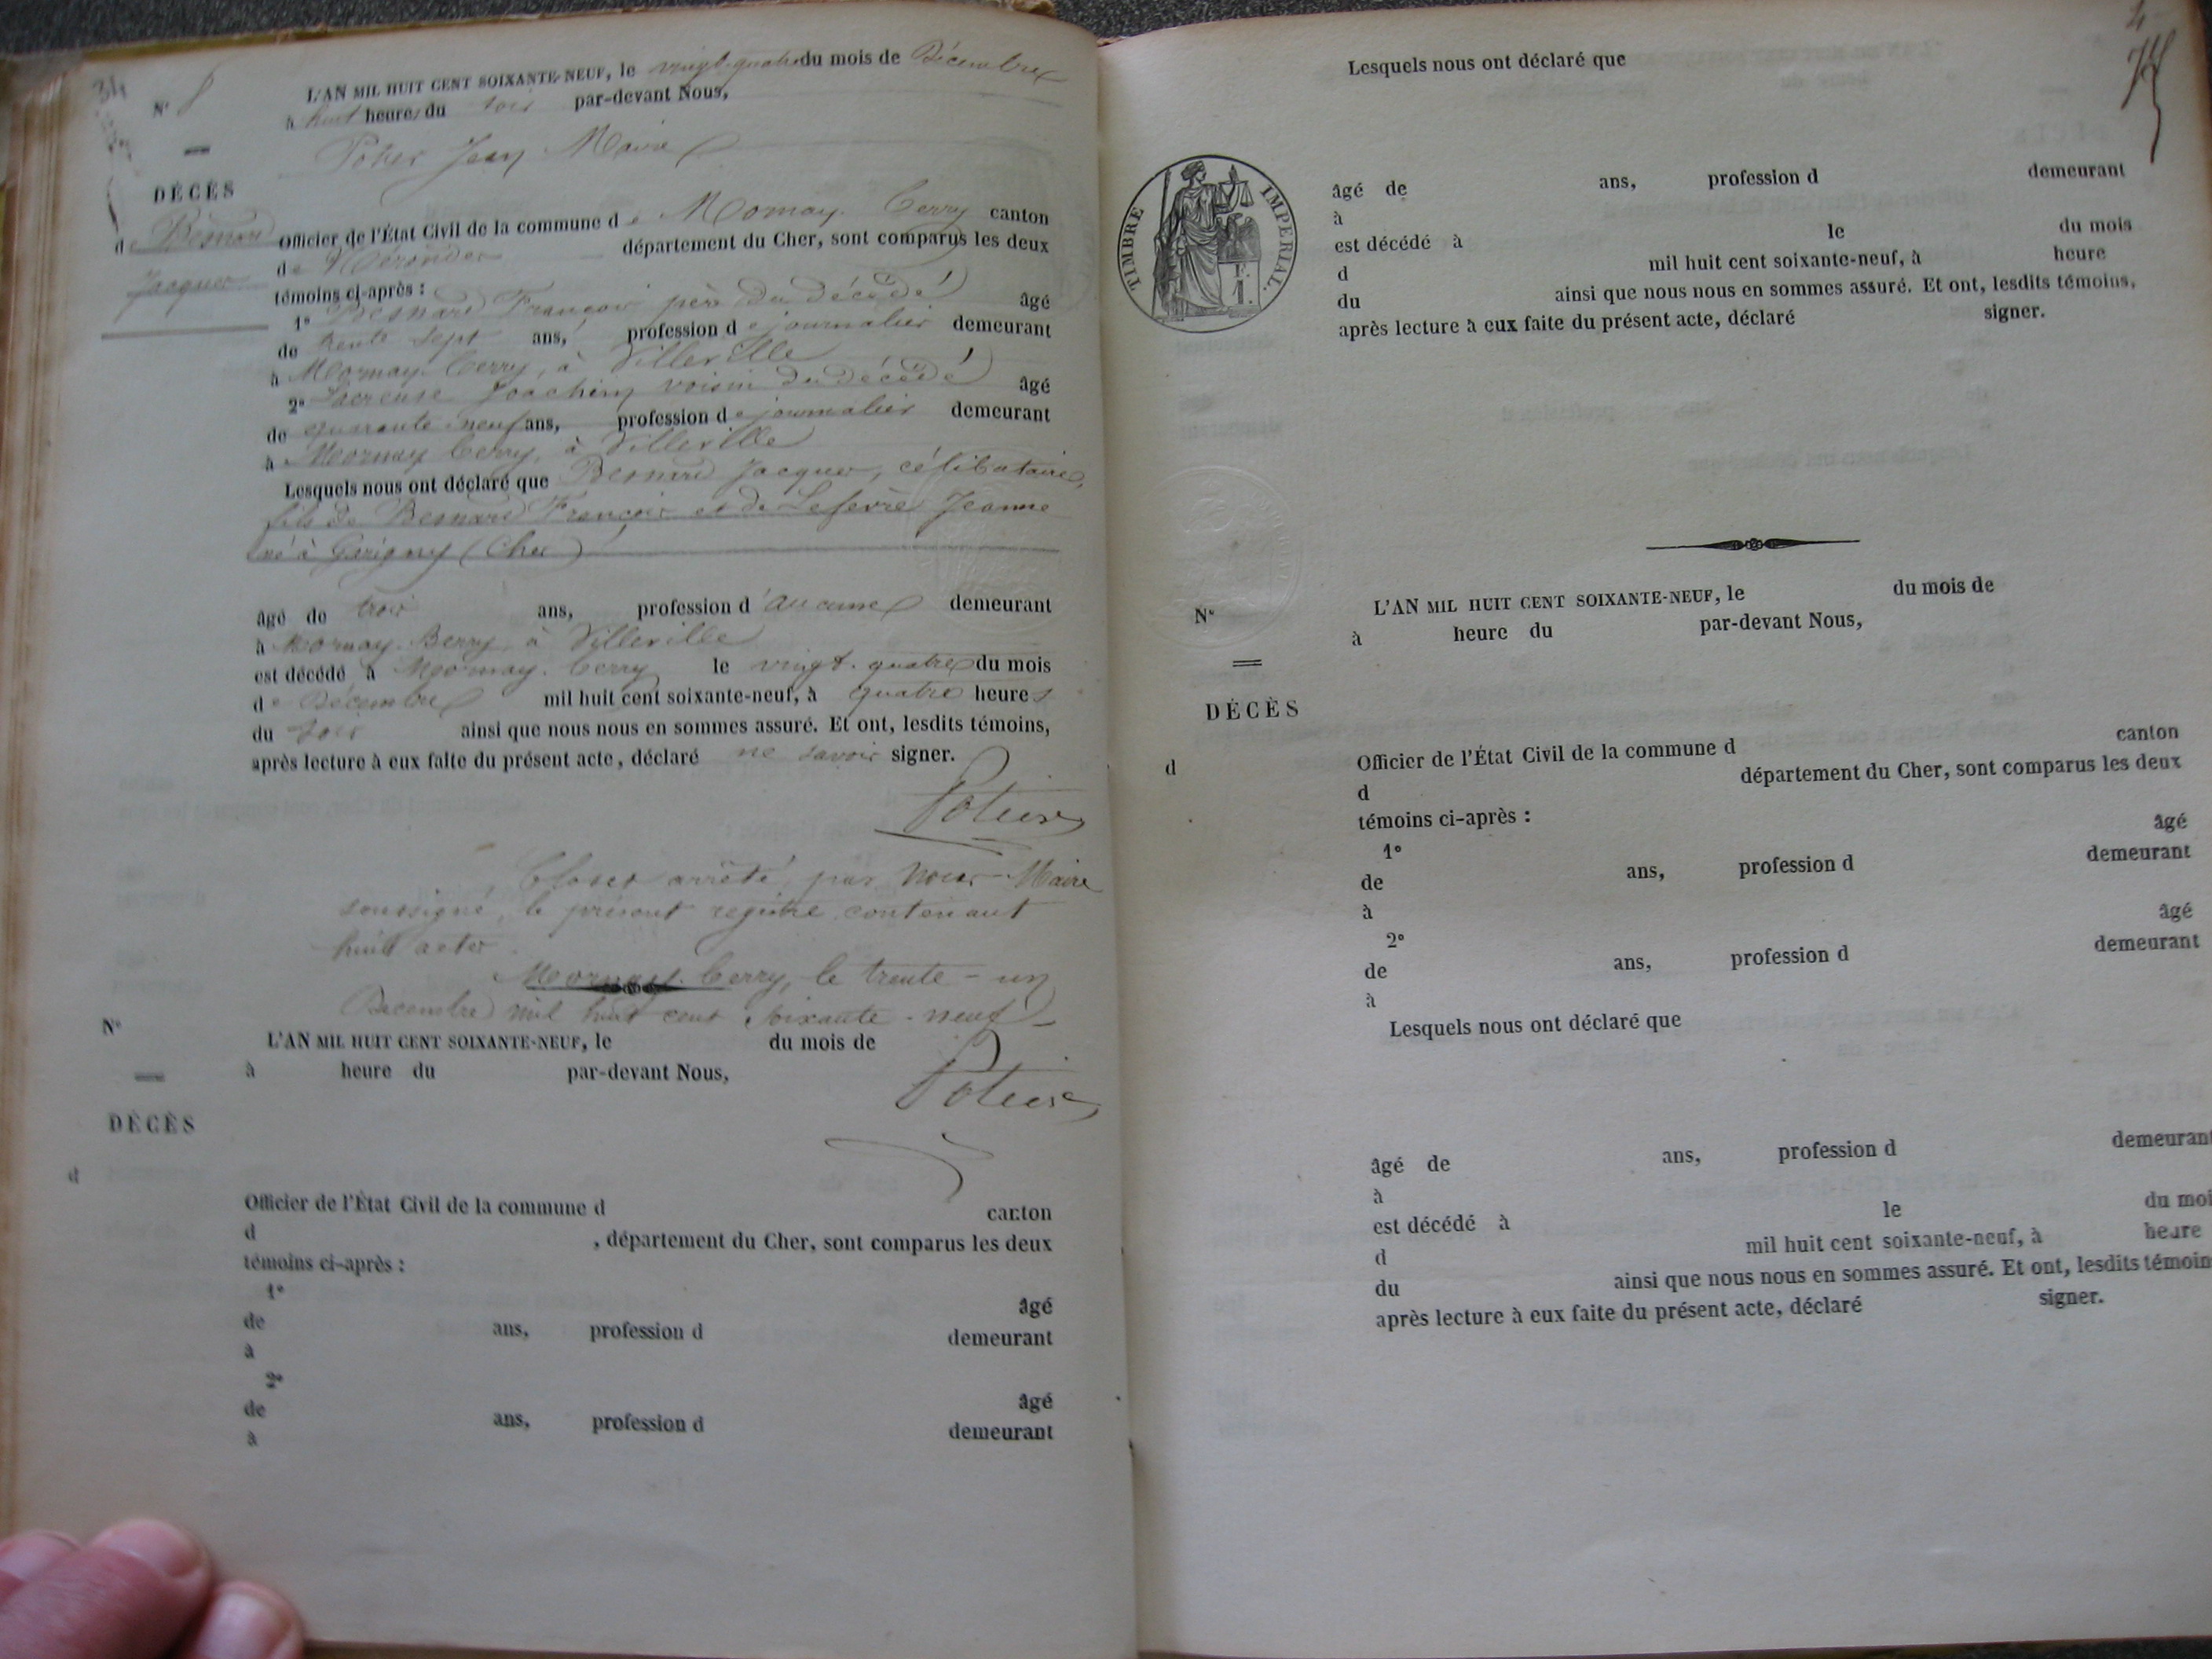 34
N° 8
L'AN MIL HUIT CENT SOIXANTE-NEUF, le vingt-quatre du mois de Décembre
à huit heures du soir par-devant Nous,
Jean Maire
DÉCÈS
de Besnard
Jacques
Officier de l'État Civil de la commune de Mornay Berry canton
de département du Cher, sont comparus les deux
témoins ci-après :
1° Besnard François père du décédé âgé
de trente sept ans, profession de journalier demeurant
à Mornay Berry, à Villeville
2° Joachim voisin du décédé âgé
de quarante neuf ans, profession de journalier demeurant
à Mornay Berry, à Villeville
Lesquels nous ont déclaré que Besnard Jacques, célibataire,
fils de Besnard François et de Lefevre Jeanne
né à Garigny (Cher)
âgé de trois ans, profession d'aucune demeurant
à Mornay-Berry à Villeville
est décédé à Mornay-Berry le vingt-quatre du mois
de Décembre mil huit cent soixante-neuf, à quatre heures
du soir ainsi que nous nous en sommes assuré. Et ont, lesdits témoins,
après lecture à eux faite du présent acte, déclaré ne savoir signer.
Clos et arrêté par Nous Maire
soussigné, le présent registre contenant
huit actes
Mornay-Berry, le trente-un
Decembre mil huit cent soixante-neuf
N°
L'AN MIL HUIT CENT SOIXANTE-NEUF, le du mois de
à heure du par-devant Nous,
DÉCÈS
d
Officier de l'État Civil de la commune d canton
d , département du Cher, sont comparus les deux
témoins ci-après :
1° âgé
de ans, profession d demeurant
à
2° âgé
de ans, profession d demeurant
à
Lesquels nous ont déclaré que
TIMBRE IMPERIAL.
âgé de ans, profession d demeurant
à
est décédé à le du mois
d mil huit cent soixante-neuf, à heure
du ainsi que nous nous en sommes assuré. Et ont, lesdits témoins,
après lecture à eux faite du présent acte, déclaré signer.
N°
L'AN MIL HUIT CENT SOIXANTE-NEUF, le du mois de
à heure du par-devant Nous,
DÉCÈS
d
Officier de l'État Civil de la commune d canton
d département du Cher, sont comparus les deux
témoins ci-après :
1° âgé
de ans, profession d demeurant
à
2° âgé
de ans, profession d demeurant
à
Lesquels nous ont déclaré que
âgé de ans, profession d demeurant
à
est décédé à le du moi
d mil huit cent soixante-neuf, à heure
du ainsi que nous nous en sommes assuré. Et ont, lesdits témoin
après lecture à eux faite du présent acte, déclaré signer.